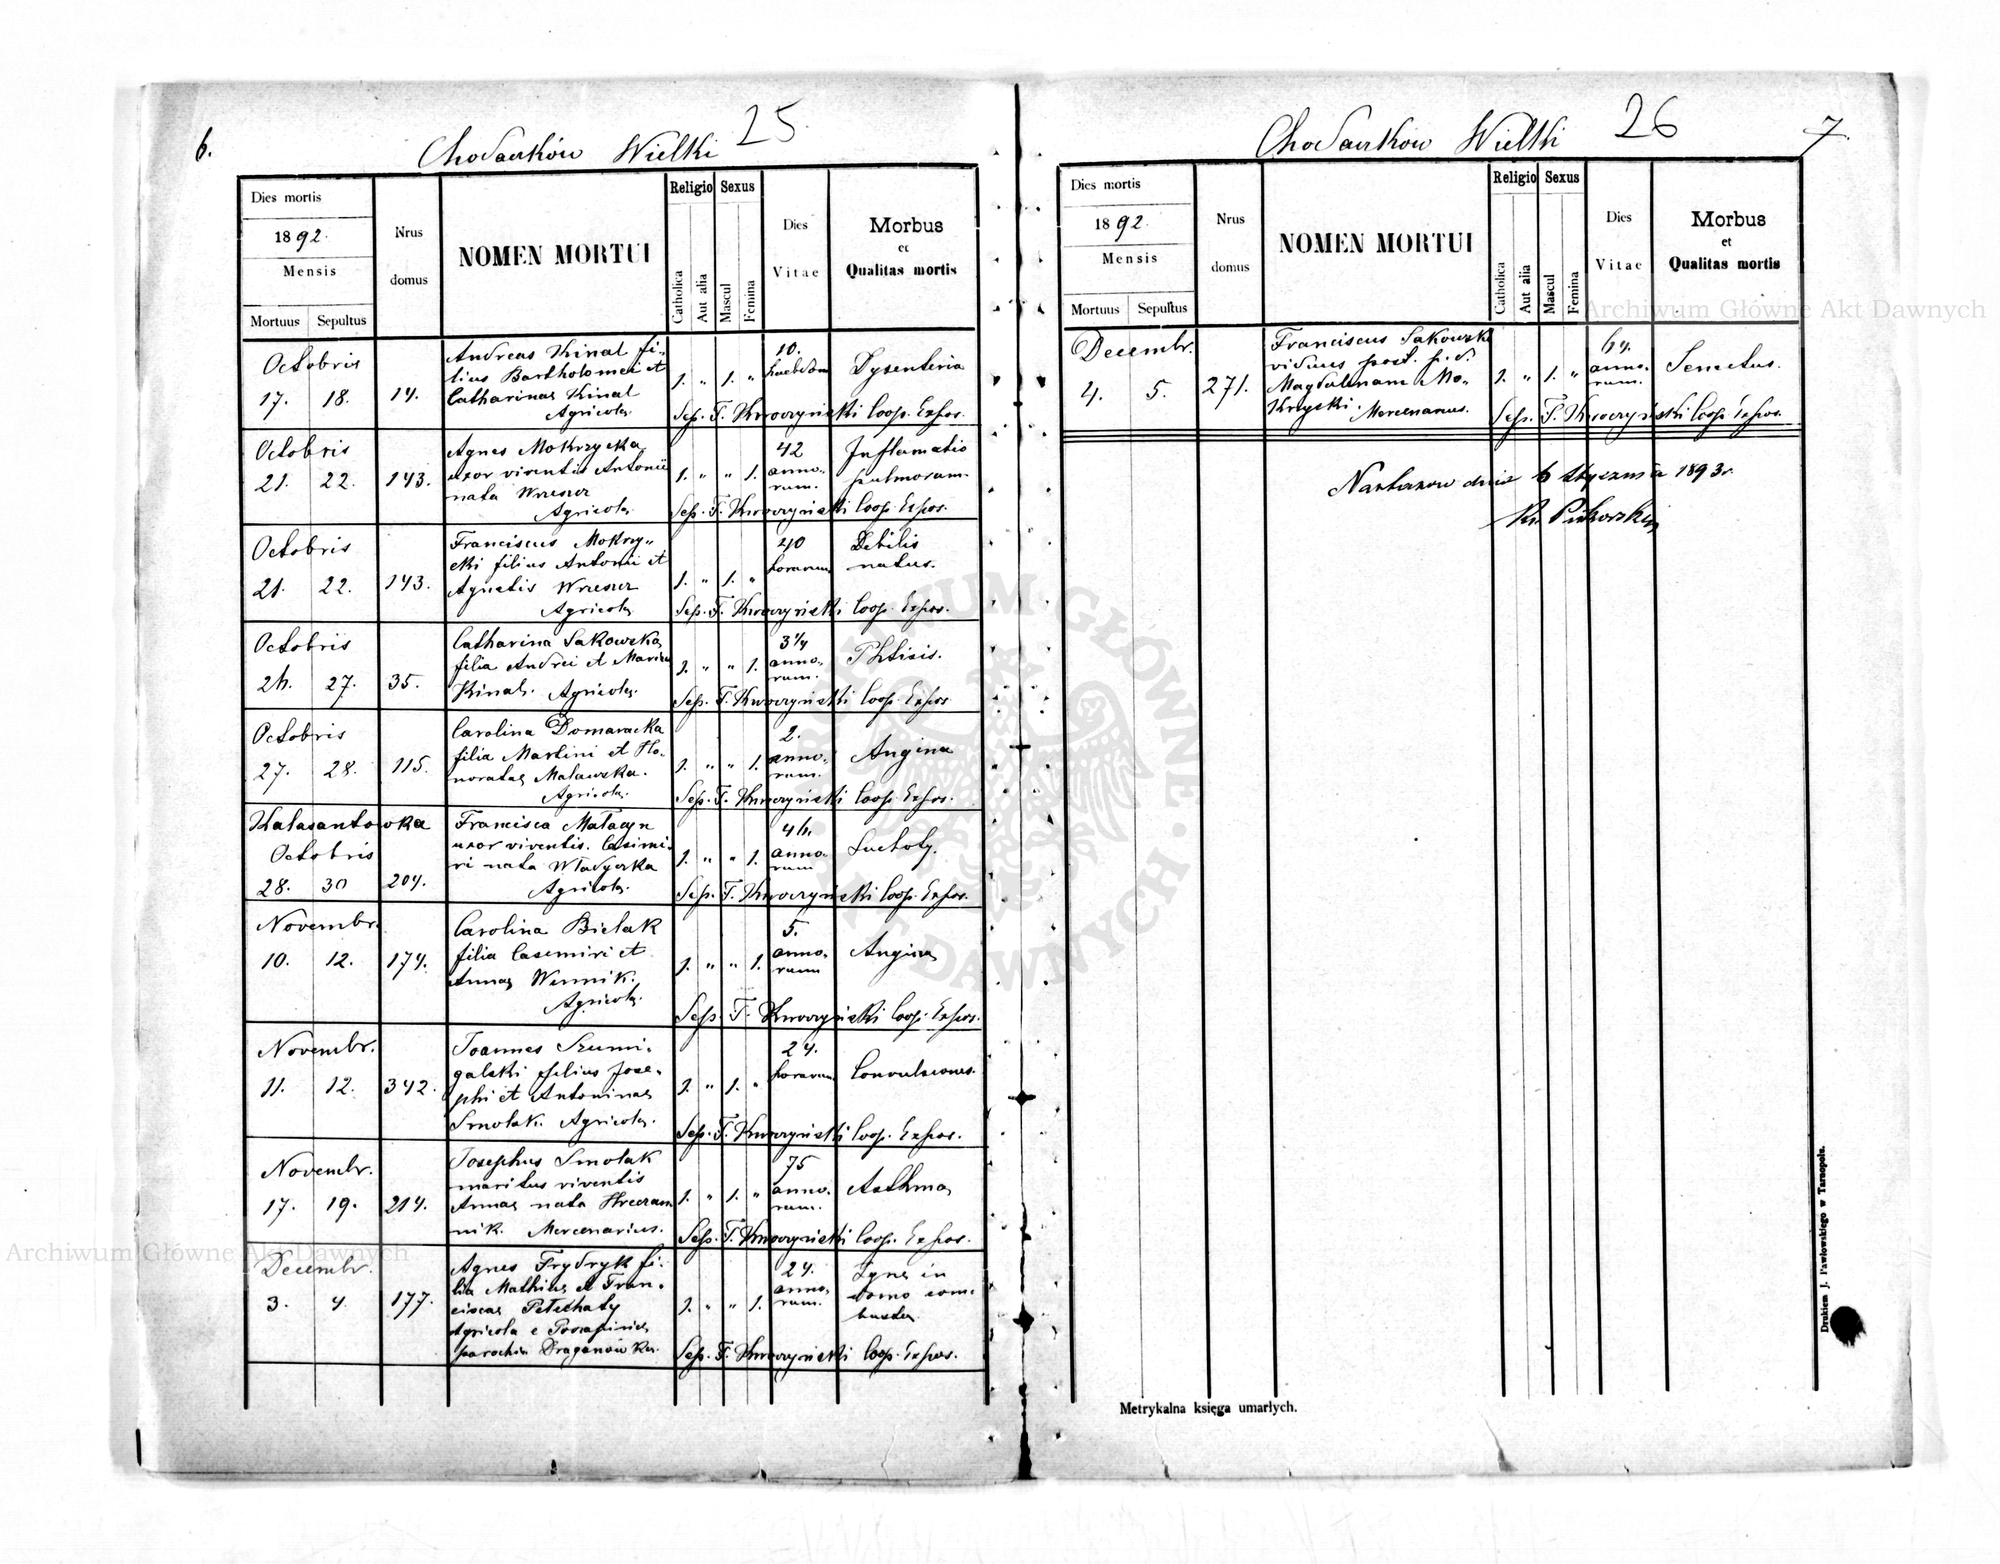 6.
Chodaczków Wielki 25
Dies mortis
1892.
Mensis
Mortuus Sepultus
Nrus
domus
NOMEN MORTUI
Religio
Catholica
Aut alia
Sexus
Mascul
Femina
Dies
Vitae
Morbus
et
Qualitas mortis
Octobris
17. 18. 14.
Andreas Kinal fi-
lius Bartholomei et
Catharinae Kinal
Agricola.
1. " 1. "
10.
hebdom
Dysenteria
Sep. T. Kwoczyński Coop. Expos.
Octobris
21. 22. 143.
Agnes Mokrzycka
uxor viventis Antonii
nata Wrzeszcz
Agricola.
1. " " 1.
42
anno-
rum.
Inflamatio
pulmorum.
Sep. T. Kwoczyński Coop. Expos.
Octobris
21. 22. 143.
Franciscus Mokrzy-
cki filius Antonii et
Agnetis Wrzeszcz
Agricola.
1. " 1. "
40
horarum
Debilis
natus.
Sep. T. Kwoczyński Coop. Expos.
Octobris
26. 27. 35.
Catharina Sakowska
filia Andrei et Mariae
Kinal. Agricola.
1. " " 1.
3 1/4
anno-
rum.
Phtisis.
Sep. T. Kwoczyński Coop. Expos.
Octobris
27. 28. 115.
Carolina Domaracka
filia Martini et Ho-
noratae Malawska.
Agricola.
1. " " 1.
2.
anno-
rum.
Angina
Sep. T. Kwoczyński Coop. Expos.
Kalasantowka
Octobris
28. 30 204.
Francisca Matacyn
uxor viventis. Casimi-
ri nata Władyczka
Agricola.
1. " " 1.
46.
anno-
rum
Suchoty.
Sep. T. Kwoczyński Coop. Expos.
Novembr.
10. 12. 174.
Carolina Bielak
filia Casemiri et
Annae Wennik.
Agricola.
1. " " 1.
5.
anno-
rum
Angina
Sep. T. Kwoczyński Coop. Expos.
Novembr.
11. 12. 342.
Joannes Szumi-
galski filius Jose-
phi et Antoninae
Smolak. Agricola.
1. " 1. "
24.
horarum
Convulsiones.
Sep. T. Kwoczyński Coop. Expos.
Novembr.
17. 19. 214.
Josephus Smolak
maritus viventis
Annae nata Hreczan
nik. Mercenarius.
1. " 1. "
75
anno-
rum.
Asthma
Sep. T. Kwoczyński Coop. Expos.
Decembr.
3. 4. 177.
Agnes Frydryk fi-
lia Mathiae et Fran-
ciscae Petechaty
Agricola e Poczapińce
parochia Draganówka.
1. " " 1.
24.
anno-
rum.
Igne in
domo com-
busta.
Sep. T. Kwoczyński Coop. Expos.
Chodaczków Wielki 26 7.
Dies mortis
1892.
Mensis
Mortuus Sepultus
Nrus
domus
NOMEN MORTUI
Religio
Catholica
Aut alia
Sexus
Mascul
Femina
Dies
Vitae
Morbus
et
Qualitas mortis
Decembr.
4. 5. 271.
Franciscus Sakowski
viduus post. p. d.
Magdalenam Mo-
kryski. Mercenarius.
1. " 1. "
64.
anno-
rum.
Senectus.
Sep. T. Kwoczyński Coop. Expos.
Nastasow dnia 6 Stycznia 1893r.
Ks. Piekorski
Metrykalna księga umarłych.
Drukiem J. Pawłowskiego w Tarnopolu.
Archiwum Główne Akt Dawnych
Archiwum Główne Akt Dawnych
ARCHIWUM GŁÓWNE AKT DAWNYCH